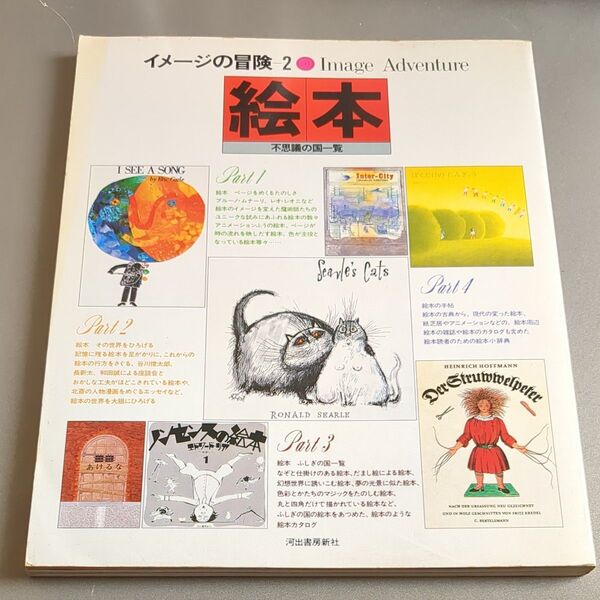 イメージの冒険-2 Image Adventure
絵本
不思議の国一覧
I SEE A SONG
by Eric Carle
Part 1
絵本 ページをめくるたのしさ
ブルーノ・ムナーリ、レオ・レオニなど
絵本のイメージを変えた魔術師たちの
ユニークな試みにあふれる絵本の数々
アニメーションふうの絵本、ページが
時の流れを映しだす絵本、色が主役と
なっている絵本等々……
Inter-City
Part 2
絵本 その世界をひろげる
記憶に残る絵本を足がかりに、これからの
絵本の行方をさぐる、谷川俊太郎、
長新太、和田誠による座談会と
おかしな工夫がほどこされている絵本や、
北斎の人物漫画をめぐるエッセイなど、
絵本の世界を大胆にひろげる
Searle's Cats
RONALD SEARLE
Part 4
絵本の手帖
絵本の古典から、現代の変った絵本、
紙芝居やアニメーションなどの、絵本周辺
絵本の雑誌や絵本のカタログも含めた
絵本読者のための絵本小辞典
あけるな
ノンセンスの絵本
エドワード・リア
1
Part 3
絵本 ふしぎの国一覧
なぞと仕掛けのある絵本、だまし絵による絵本、
幻想世界に誘いこむ絵本、夢の光景に似た絵本、
色彩とかたちのマジックをたのしむ絵本、
丸と四角だけで描かれている絵本など、
ふしぎの国の絵本をあつめた、絵本のような
絵本カタログ
HEINRICH HOFFMANN
Der Struwwelpeter
NACH DER URFASSUNG NEU GEZEICHNET
UND IN HOLZ GESCHNITTEN VON FRITZ KREDEL
C. BERTELSMANN
河出書房新社